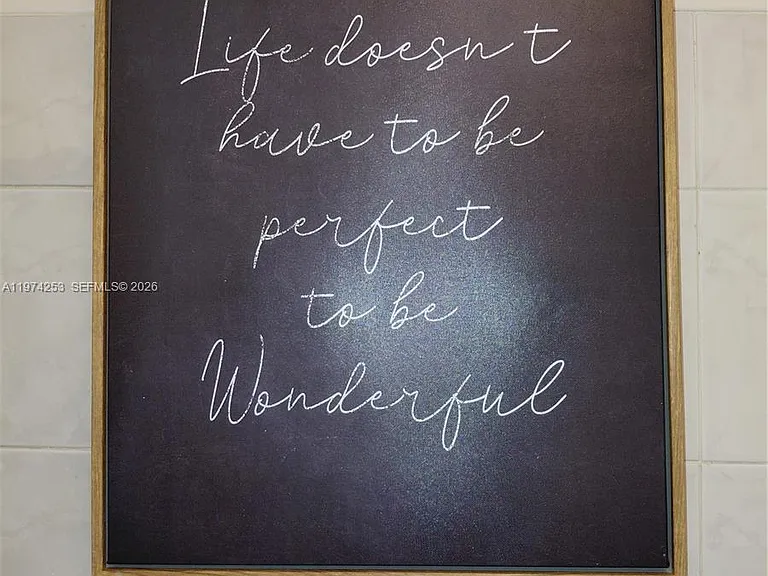 Life doesn't
have to be
perfect
to be
Wonderful
A11974253 SEFMLS© 2026